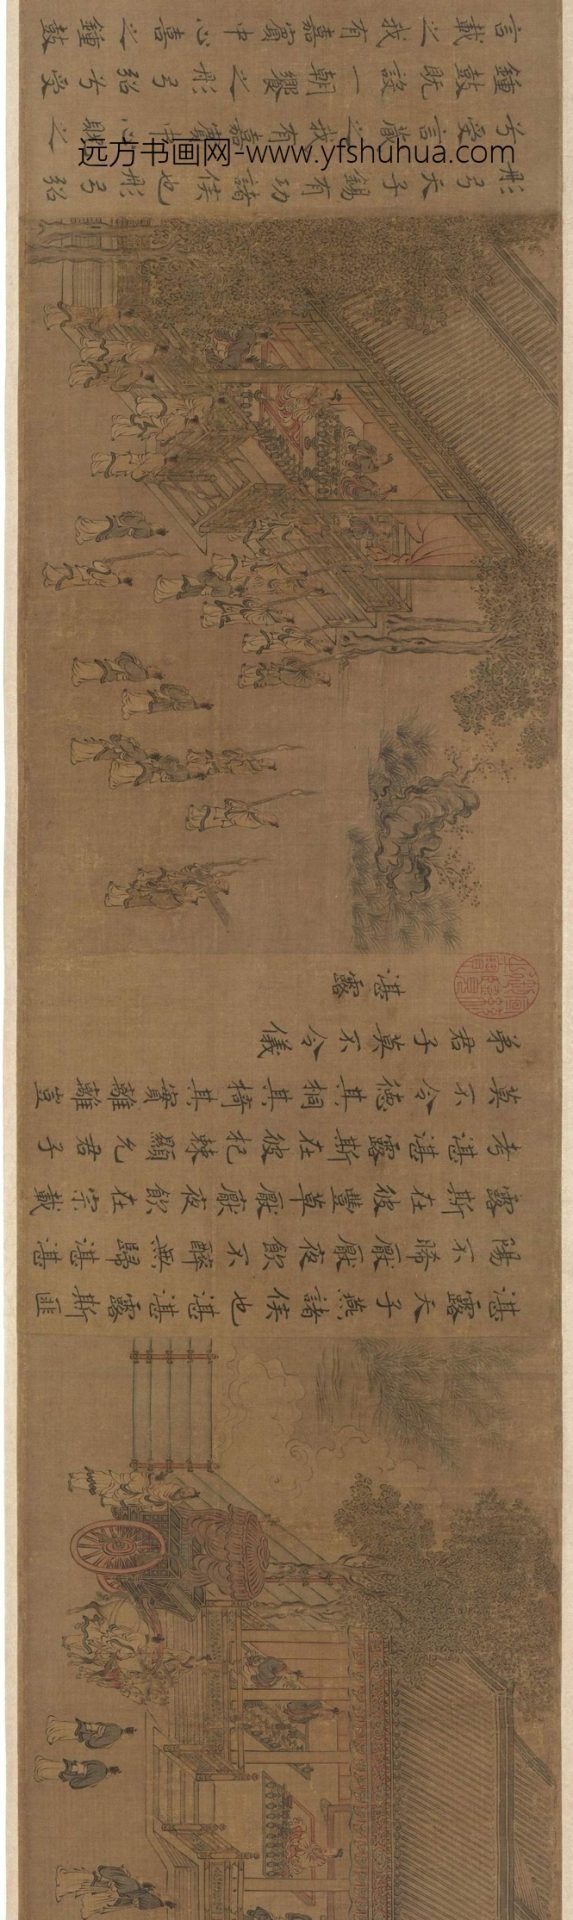 湛露天子燕諸侯也湛湛露斯匪
陽不晞厭厭夜飲不醉無歸湛湛
露斯在彼豐草厭厭夜飲在宗載
考湛湛露斯在彼杞棘顯允君子
莫不令德其桐其椅其實離離豈
弟君子莫不令儀
湛露
彤弓天子錫有功諸侯也彤弓弨
兮受言藏之我有嘉賓中心貺之
鍾鼓既設一朝饗之彤弓弨兮受
言載之我有嘉賓中心喜之鍾鼓
远方书画网-www.yfshuhua.com